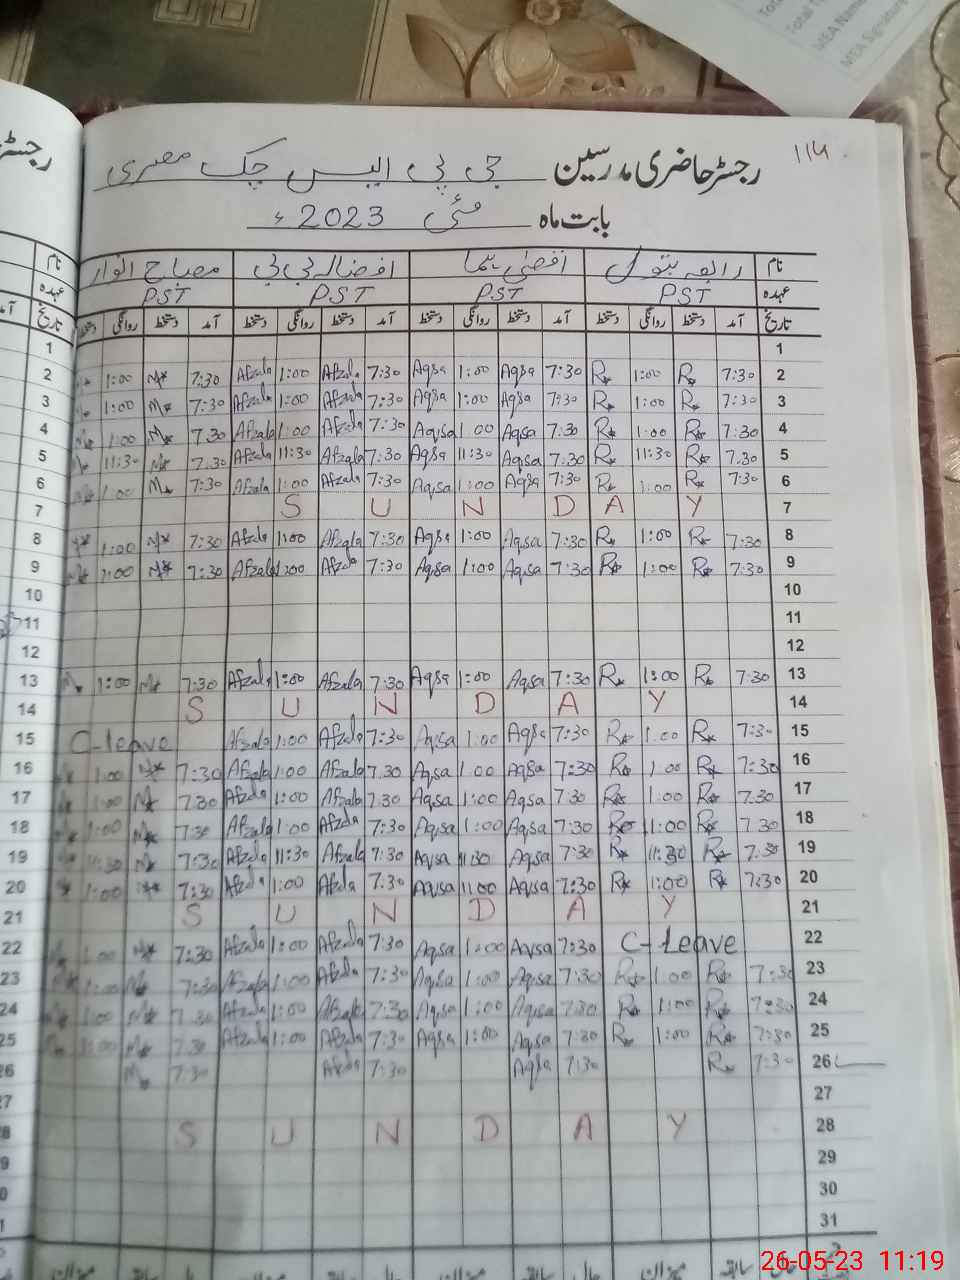 Total
MEA Name
MEA Signature
114
رجسٹر حاضری مدرسین جی پی ایس چک مصری
بابت ماہ مئی 2023ء
نام رابعہ بتول اقصیٰ افضالہ بی بی مصباح انوار
عہدہ PST PST PST PST
تاریخ آمد دستخط روانگی دستخط آمد دستخط روانگی دستخط آمد دستخط روانگی دستخط آمد دستخط روانگی دستخط
1 1
2 1:00 M* 7:30 Afzala 1:00 Afzala 7:30 Aqsa 1:00 Aqsa 7:30 R* 1:00 R* 7:30 2
3 1:00 M* 7:30 Afzala 1:00 Afzala 7:30 Aqsa 1:00 Aqsa 7:30 R* 1:00 R* 7:30 3
4 M* 1:00 M* 7:30 Afzala 1:00 Afzala 7:30 Aqsa 1:00 Aqsa 7:30 R* 1:00 R* 7:30 4
5 11:30 M* 7:30 Afzala 11:30 Afzala 7:30 Aqsa 11:30 Aqsa 7:30 R* 11:30 R* 7:30 5
6 1:00 M* 7:30 Afzala 1:00 Afzala 7:30 Aqsa 1:00 Aqsa 7:30 R* 1:00 R* 7:30 6
7 S U N D A Y 7
8 1:00 M* 7:30 Afzala 1:00 Afzala 7:30 Aqsa 1:00 Aqsa 7:30 R* 1:00 R* 7:30 8
9 M* 1:00 M* 7:30 Afzala 1:00 Afzala 7:30 Aqsa 1:00 Aqsa 7:30 R* 1:00 R* 7:30 9
10 10
11 11
12 12
13 M* 1:00 M* 7:30 Afzala 1:00 Afzala 7:30 Aqsa 1:00 Aqsa 7:30 R* 1:00 R* 7:30 13
14 S U N D A Y 14
15 C-leave Afzala 1:00 Afzala 7:30 Aqsa 1:00 Aqsa 7:30 R* 1:00 R* 7:30 15
16 1:00 M* 7:30 Afzala 1:00 Afzala 7:30 Aqsa 1:00 Aqsa 7:30 R* 1:00 R* 7:30 16
17 1:00 M* 7:30 Afzala 1:00 Afzala 7:30 Aqsa 1:00 Aqsa 7:30 R* 1:00 R* 7:30 17
18 1:00 M* 7:30 Afzala 1:00 Afzala 7:30 Aqsa 1:00 Aqsa 7:30 R* 1:00 R* 7:30 18
19 11:30 M* 7:30 Afzala 11:30 Afzala 7:30 Aqsa 11:30 Aqsa 7:30 R* 11:30 R* 7:30 19
20 1:00 M* 7:30 Afzala 1:00 Afzala 7:30 Aqsa 1:00 Aqsa 7:30 R* 1:00 R* 7:30 20
21 S U N D A Y 21
22 1:00 M* 7:30 Afzala 1:00 Afzala 7:30 Aqsa 1:00 Aqsa 7:30 C-Leave 22
23 1:00 M* 7:30 Afzala 1:00 Afzala 7:30 Aqsa 1:00 Aqsa 7:30 R* 1:00 R* 7:30 23
24 M* 1:00 M* 7:30 Afzala 1:00 Afzala 7:30 Aqsa 1:00 Aqsa 7:30 R* 1:00 R* 7:30 24
25 1:00 M* 7:30 Afzala 1:00 Afzala 7:30 Aqsa 1:00 Aqsa 7:30 R* 1:00 R* 7:30 25
M* 7:30 Afzala 7:30 Aqsa 7:30 R* 7:30 26
27
S U N D A Y 28
29
30
31
سابقہ میزان حال سابقہ میزان
26-05-23 11:19